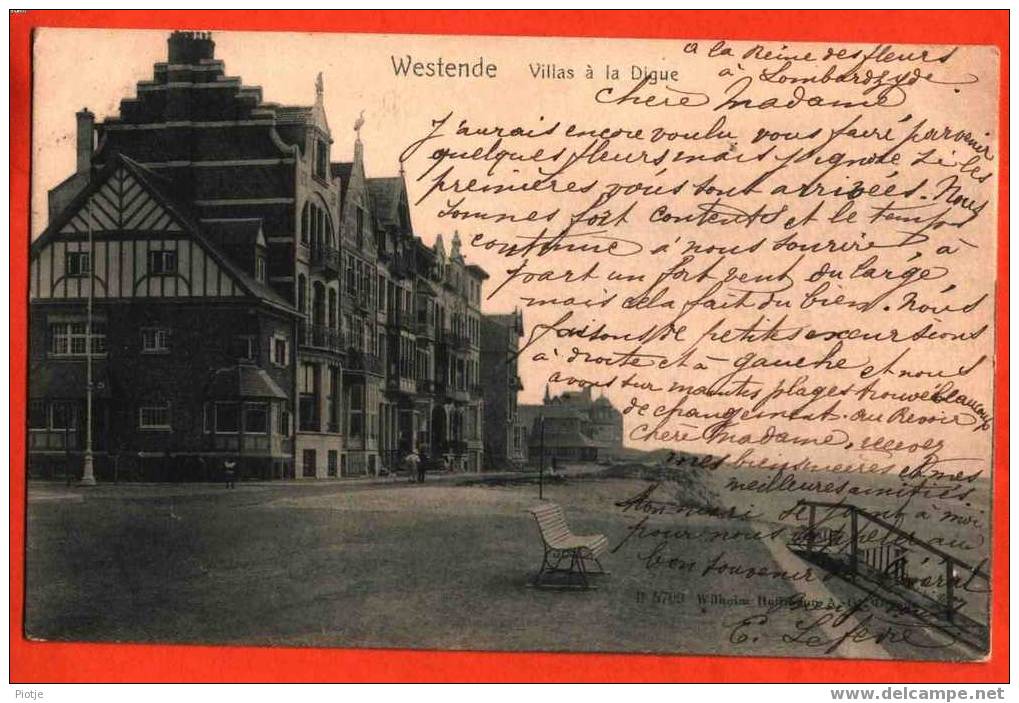 Westende Villas à la Digue
à la Reine des fleurs
à Lombardzyde
Chère Madame
J'aurais encore voulu vous faire parvenir
quelques fleurs mais j'ignore si les
premières vous sont arrivées. Nous
sommes fort contents et le temps
continue à nous sourire, à
part un fort vent du large
mais cela fait du bien. Nous
faisons de petites excursions
à droite et à gauche et nous
avons sur maintes plages trouvé beaucoup
de changement. Au Revoir
Chère Madame, recevez
mes biens et mes
meilleures amitiés
Mon mari se joint à moi
pour nous rappeler au
bon souvenir de
E. Lefevre
5709 Wilhelm Hoffmann A.-G.
Piotje
http://www.delcampe.net